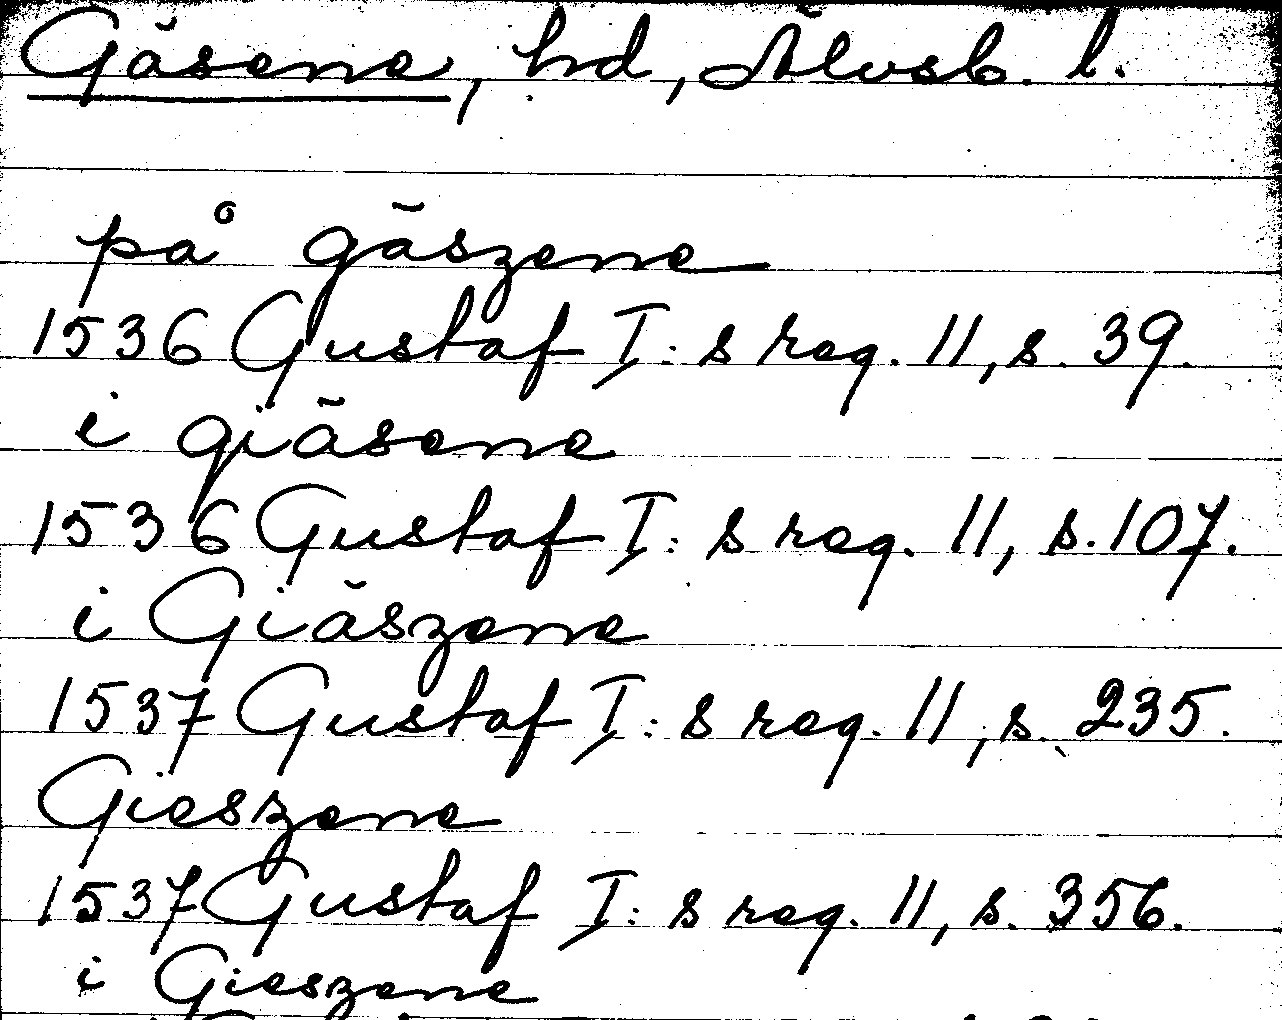 Gäsene, hd, Älvsb. l.
på gäszene
1536 Gustaf I:s reg. 11, s. 39.
i giäsene
1536 Gustaf I:s reg. 11, s. 107.
i Giäszene
1537 Gustaf I:s reg. 11, s. 235.
Gieszene
1537 Gustaf I:s reg. 11, s. 356.
i Gieszene